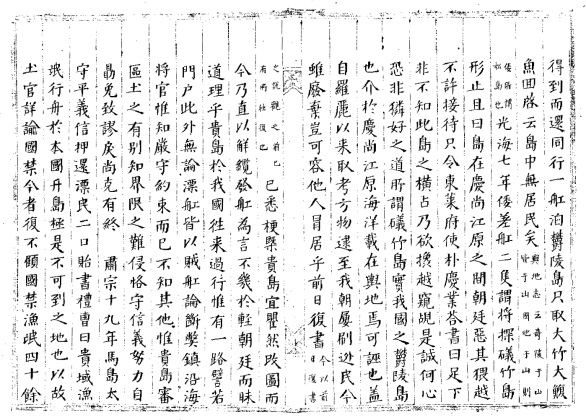 得到而還同行一船泊鬱陵島只取大竹大鰒
魚回啓云島中無居民矣輿地志云蔚陵于山皆于山國地于山則
倭所謂松島也光海七年倭差船二隻謂將探礒竹島
形止且曰島在慶尚江原之間朝廷惡其猥越
不許接待只令東萊府使朴慶業答書曰足下
非不知此島之橫占乃欲攙越窺覘是誠何心
恐非獜好之道所謂礒竹島實我國之鬱陵島
也介於慶尚江原海洋載在輿地焉可誣也盖
自羅麗以來取考方物逮至我朝屢刷逃民今
雖廢棄豈可容他人冒居乎前日復書今以前日復書
之說觀之前已有所往復已已悉梗槩貴島宜瞿然改圖而
今乃直以解纜發船為言不幾於輕朝廷而昧
道理乎貴島於我國徃來過行惟有一路譬若
門戶此外無論漂船皆以賊船論斷弊鎮沿海
將官惟知嚴守約束而已不知其他惟貴島審
區土之有別知界限之難侵恪守信義努力自
勗免致謬戾尚克有終 肅宗十九年馬島太
守平義信押還漂民二口貽書禮曹曰貴域漁
氓行舟於本國丹島極是不可到之地也以故
土官詳論國禁今者復不顧國禁漁氓四十餘